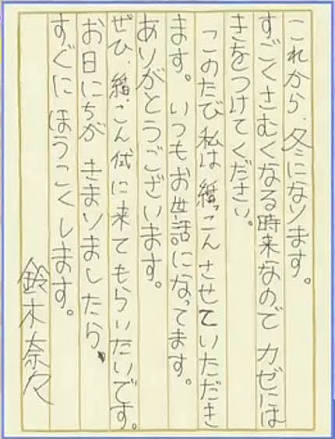 これから、冬になります。
すごくさむくなる時来なのでカゼには
きをつけてください。
このたび私は結っこんさせていただき
ます。いつもお世話になってます。
ありがとうございます。
ぜひ、結こん式に来てもらいたいです。
お日にちがきまりましたら、
すぐにほうこくします。
鈴木奈久